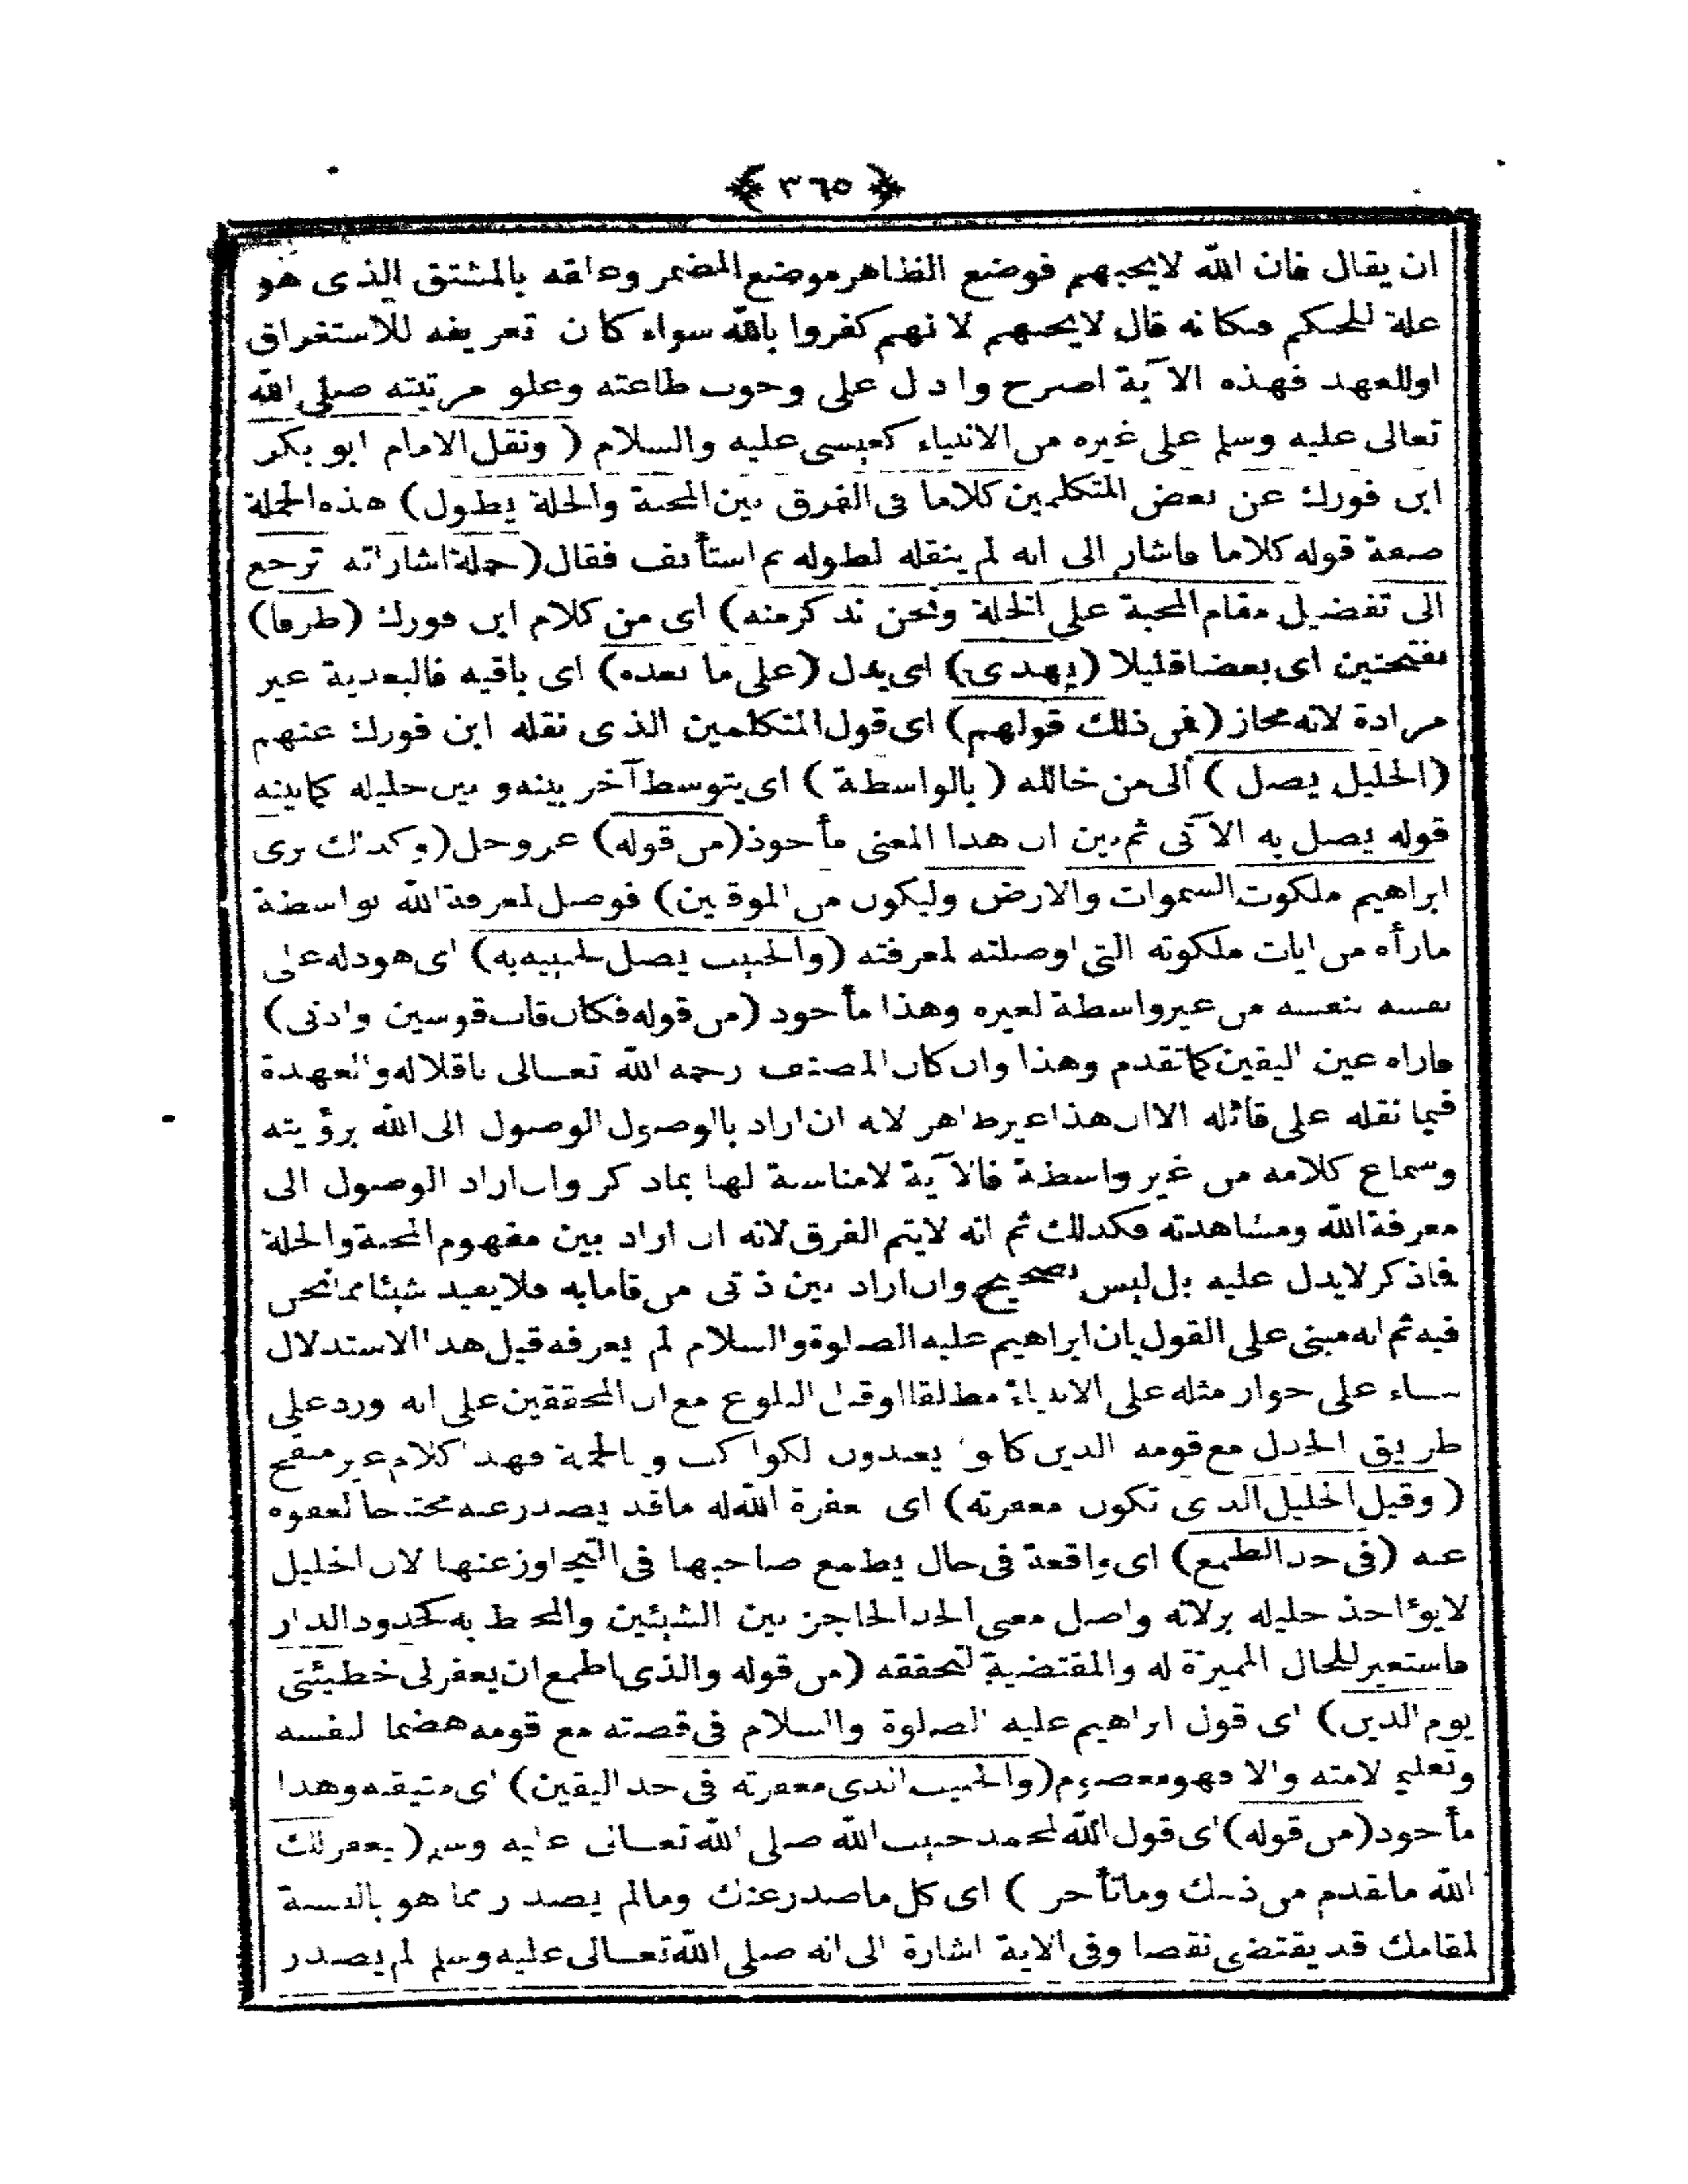 ﴿ ٣٦٥ ﴾
ان يقال فان الله لايحبهم فوضع الظاهر موضع المضمر وعلقه بالمشتق الذى هو
علة للحكم فكانه قال لايحبهم لانهم كفروا بالله سواء كان تعريفه للاستغراق
اوللعهد فهذه الآية اصرح وادل على وجوب طاعته وعلو مرتبته صلى الله
تعالى عليه وسلم على غيره من الانبياء كعيسى عليه والسلام ( ونقل الامام ابو بكر
ابن فورك عن بعض المتكلمين كلاما فى الفرق بين المحبة والخلة يطول ) هذه الجملة
صفة قوله كلاما فاشار الى انه لم ينقله لطوله ثم استأنف فقال ( جملة اشاراته ترجع
الى تفضيل مقام المحبة على الخلة ونحن نذكر منه ) اى من كلام ابن فورك ( طرفا )
بفتحتين اى بعضا قليلا ( يهدى ) اى يدل ( على ما بعده ) اى باقيه فالبعدية غير
مرادة لانه مجاز ( فمن ذلك قولهم ) اى قول المتكلمين الذى نقله ابن فورك عنهم
( الخليل يصل ) الى من خالله ( بالواسطة ) اى بتوسط آخر بينه و بين خليله كمابينه
قوله يصل به الآتى ثم بين ان هذا المعنى مأخوذ ( من قوله ) عز وجل ( وكذلك نرى
ابراهيم ملكوت السموات والارض وليكون من الموقنين ) فوصل لمعرفة الله بواسطة
مارأه من ايات ملكوته التى اوصلته لمعرفته ( والحبيب يصل لحبيبه به ) اى هو دله على
نفسه بنفسه من غير واسطة لغيره وهذا مأخوذ ( من قوله فكان قاب قوسين وادنى )
فاراه عين اليقين كماتقدم وهذا وان كان المصنف رحمه الله تعالى ناقلا له والعهدة
فيما نقله على قائله الاان هذا غير ظاهر لانه ان اراد بالوصول الوصول الى الله برؤيته
وسماع كلامه من غير واسطة فالآية لامناسبة لها بماذكر وان اراد الوصول الى
معرفة الله ومشاهدته فكذلك ثم انه لايتم الفرق لانه ان اراد بين مفهوم المحبة والخلة
فاذكر لايدل عليه بل ليس بصحيح وان اراد بين ذتى من قاما به فلايفيد شيئا ممانحن
فيه ثم انه مبنى على القول بان ابراهيم عليه الصلوة والسلام لم يعرفه قبل هذا الاستدلال
بناء على جواز مثله على الانبياء مطلقا اوقبل البلوغ مع ان المحققين على انه ورد على
طريق الجدل مع قومه الذين كانوا يعبدون الكواكب و بالجملة فهذا كلام غير منقح
( وقيل الخليل الذى تكون مغفرته ) اى مغفرة الله له ماقد يصدر عنه محتاجا لعفوه
عنه ( فى حد الطمع ) اى واقعة فى حال يطمع صاحبها فى التجاوز عنها لان الخليل
لايؤاخذ خليله بزلاته واصل معنى الحد الحاجز بين الشيئين والمحيط به كحدود الدار
فاستعير للحال المميزة له والمقتضية لتحققه ( من قوله والذى اطمع ان يغفرلى خطيئتى
يوم الدين ) اى قول ابراهيم عليه الصلوة والسلام فى قصته مع قومه هضما لنفسه
وتعليم لامته والا فهو معصوم ( والحبيب الذى مغفرته فى حد اليقين ) اى متيقنه وهذا
مأخوذ ( من قوله ) اى قول الله لمحمد حبيب الله صلى الله تعالى عليه وسلم ( ليغفر لك
الله ماتقدم من ذنبك وماتأخر ) اى كل ماصدر عنك ومالم يصدر مما هو بالنسبة
لمقامك قد يقتضى نقصا وفى الاية اشارة الى انه صلى الله تعالى عليه وسلم لم يصدر